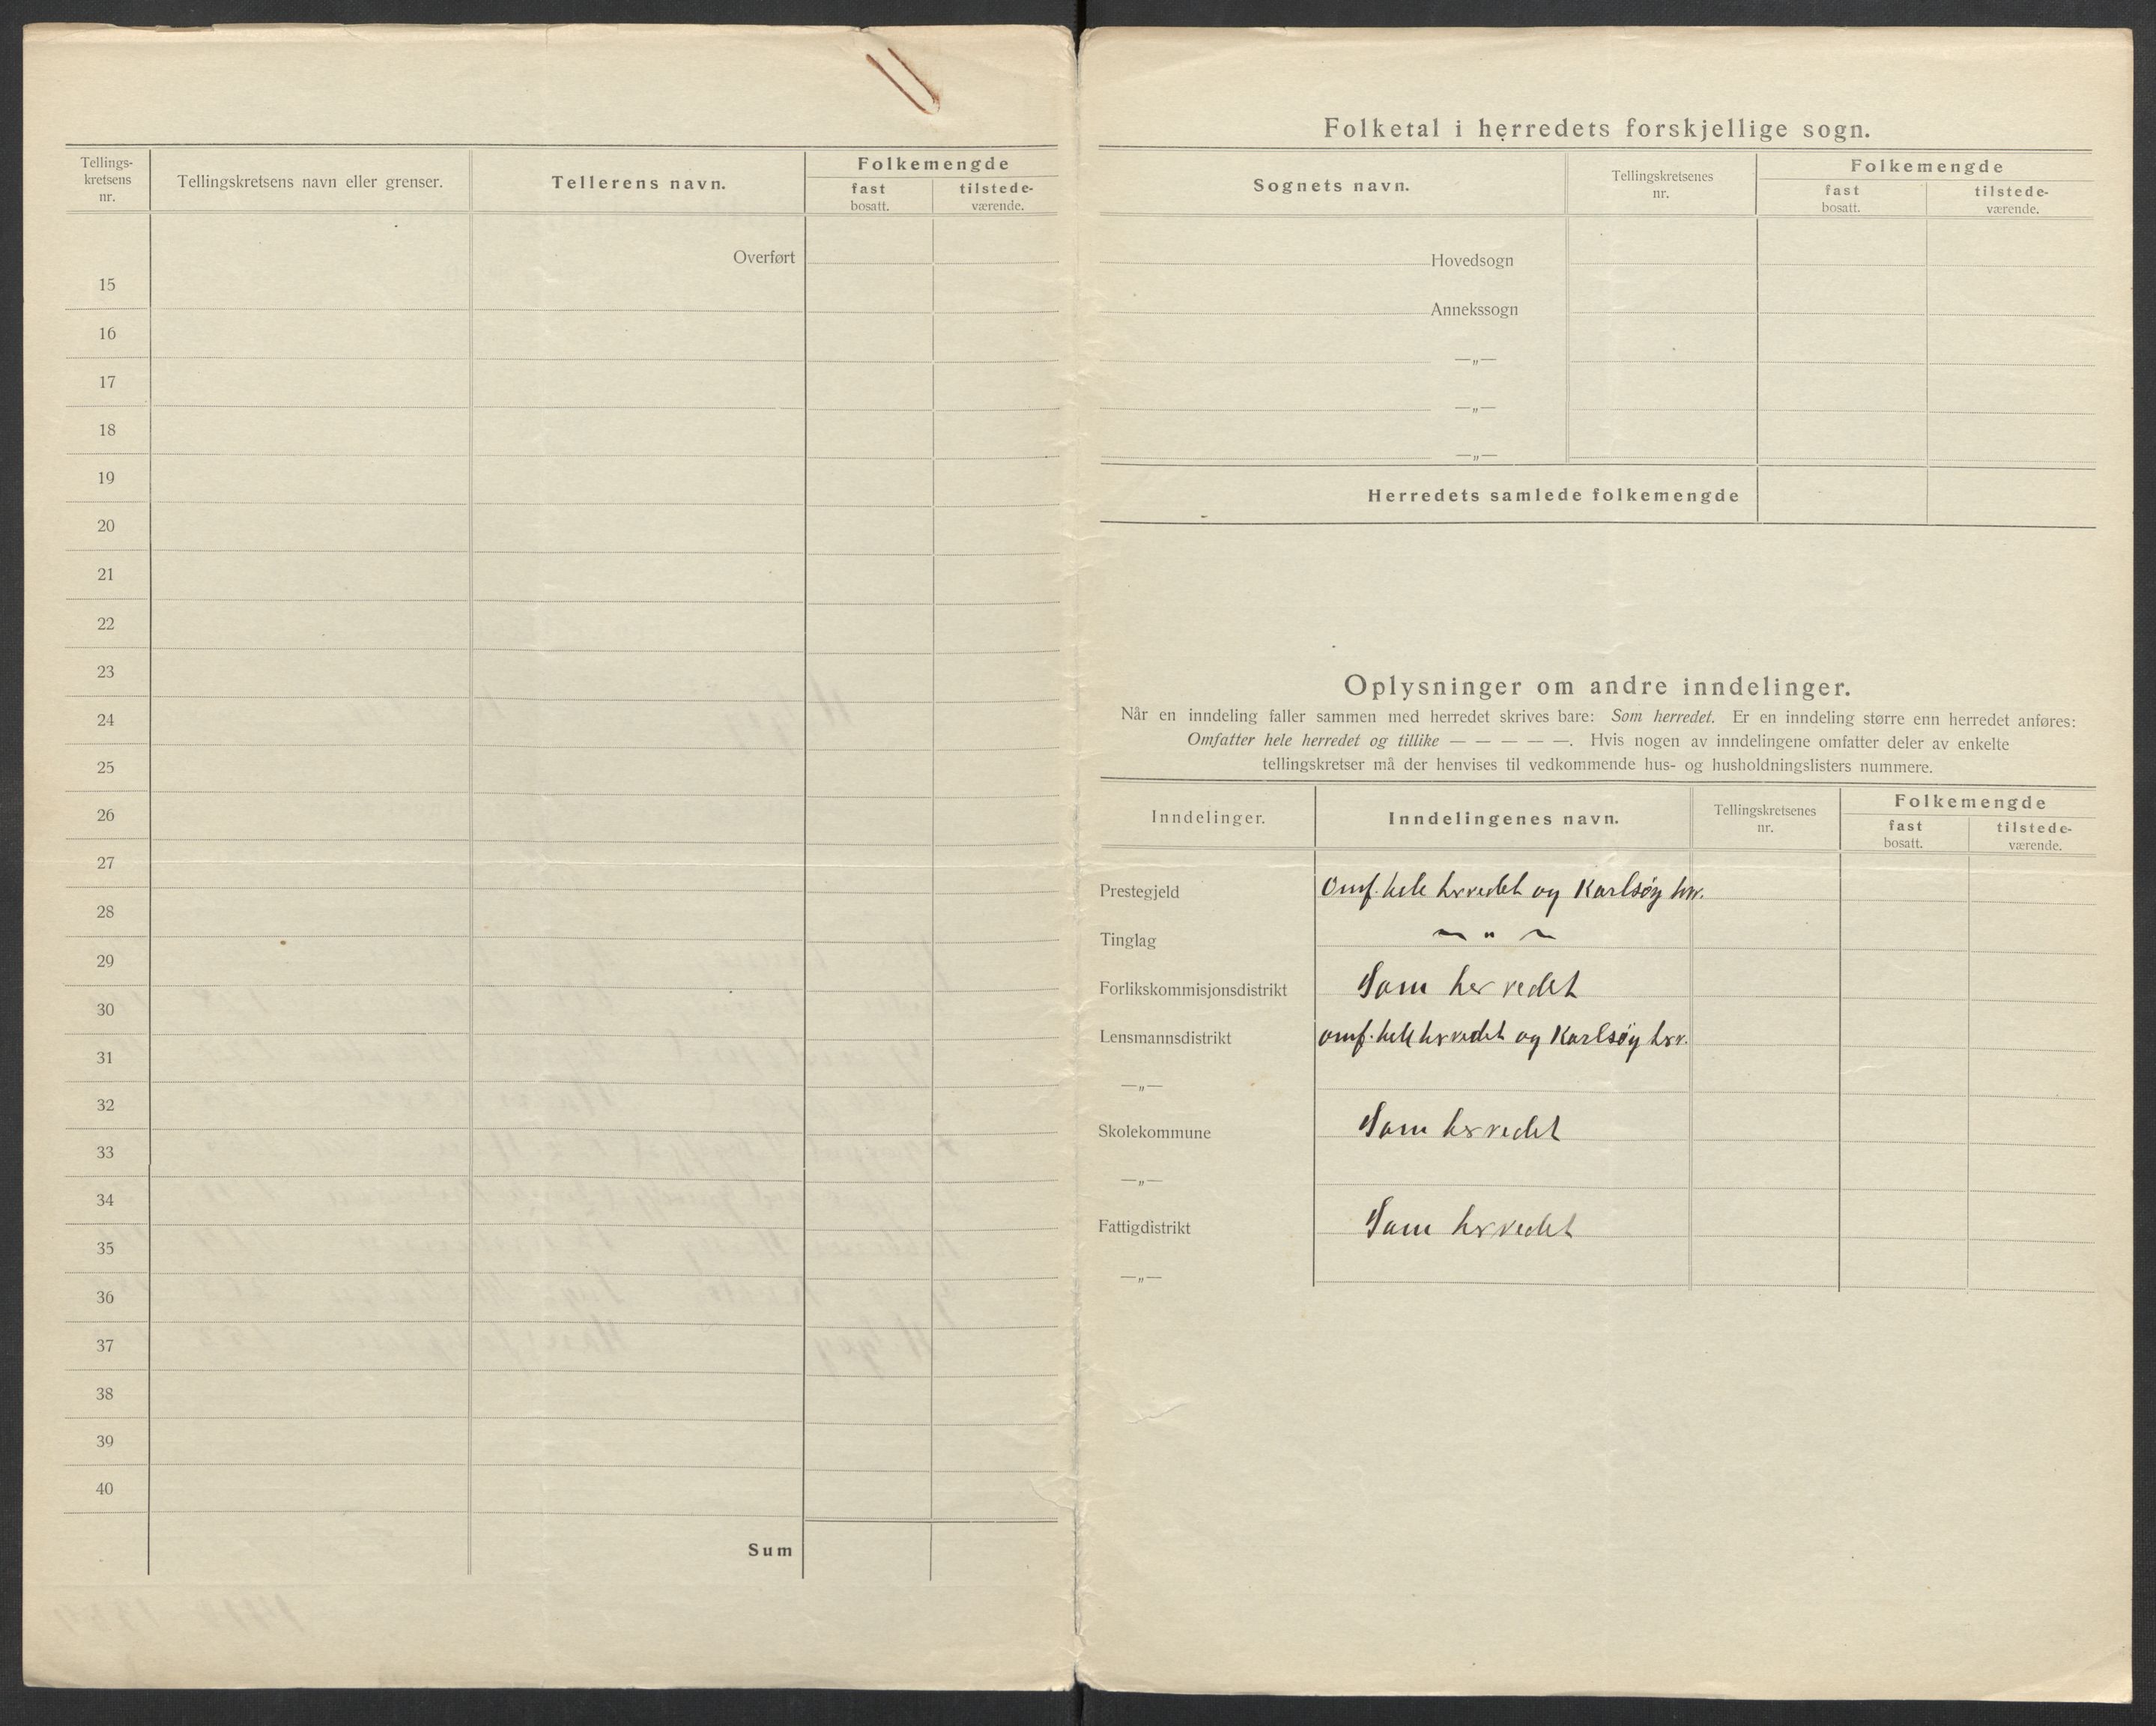 Tellings-
kretsens
nr.
Tellingskretsens navn eller grenser.
Tellerens navn.
Folkemengde
fast
bosatt.
tilstede-
værende.
Overført
15
16
17
18
19
20
21
22
23
24
25
26
27
28
29
30
31
32
33
34
35
36
37
38
39
40
Sum
Folketal i herredets forskjellige sogn.
Sognets navn.
Tellingskretsenes
nr.
Folkemengde
fast
bosatt.
tilstede-
værende.
Hovedsogn
Annekssogn
—„—
—„—
—„—
Herredets samlede folkemengde
Oplysninger om andre inndelinger.
Når en inndeling faller sammen med herredet skrives bare: Som herredet. Er en inndeling større enn herredet anføres:
Omfatter hele herredet og tillike — — — — —. Hvis nogen av inndelingene omfatter deler av enkelte
tellingskretser må der henvises til vedkommende hus- og husholdningslisters nummere.
Inndelinger.
Inndelingenes navn.
Tellingskretsenes
nr.
Folkemengde
fast
bosatt.
tilstede-
værende.
Prestegjeld Omf. hele herredet og Karlsøy herr.
Tinglag — „ —
Forlikskommisjonsdistrikt Som herredet
Lensmannsdistrikt omf. hele herredet og Karlsøy herr.
—„—
Skolekommune Som herredet
—„—
Fattigdistrikt Som herredet
—„—